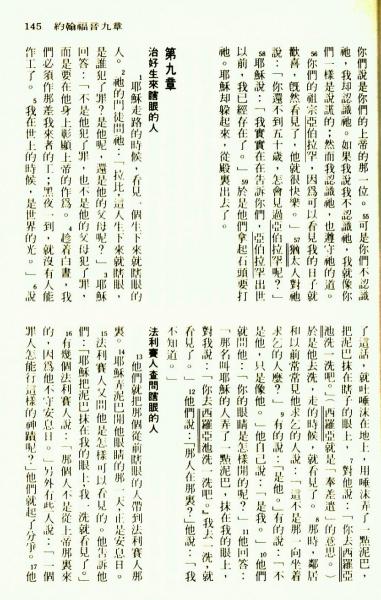 145 約翰福音九章
你們說是你們的上帝的那一位。55可是你們不認識
祂，我却認識祂。如果我說我不認識祂，我就像你
們一樣是說謊的，然而我認識祂，也遵守祂的道。
56你們的祖宗亞伯拉罕，因為可以看見我的日子就
歡喜，旣然看見了，他就很快樂。」57猶太人對祂
說：「你還不到五十歲，怎會見過亞伯拉罕呢？」
58耶穌說：「我實實在在告訴你們，亞伯拉罕出世
以前，我已經存在了。」59於是他們拿起石頭要打
祂。耶穌却躲起來，從殿裏出去了。
第九章
治好生來瞎眼的人
耶穌走路的時候，看見一個生下來就瞎眼的
人。2祂的門徒問祂：「拉比，這人生下來就瞎眼，
是誰犯了罪？是他呢，還是他的父母呢？」3耶穌
回答：「不是他犯了罪，也不是他的父母犯了罪，
而是要在他身上彰顯上帝的作為。4趁着白晝，我
們必須作那差我來者的工；黑夜一到，就沒有人能
作工了。5我在世上的時候，是世界的光。」6說
了這話，就吐唾沫在地上，用唾沫弄了一點泥巴，
把泥巴抹在瞎子的眼上，7對他說：「你去西羅亞
池洗一洗吧。」（西羅亞就是「奉差遣」的意思。）
於是他去洗，走的時候，就看見了。8那時，鄰居
和以前常常見他求乞的人說：「這不是那一向坐着
求乞的人麼？」9有的說：「是他。」有的說：「不
是他，只是像他。」他自己說：「是我。」10他們
就問他：「你的眼睛是怎樣開的呢？」11他回答：
「那名叫耶穌的人弄了一點泥巴，抹在我的眼上，
對我說：『你去西羅亞池洗一洗吧。』我去一洗，就
看見了。」12他們說：「那人在那裏？」他說：「我
不知道。」
法利賽人查問瞎眼的人
13他們就把那個從前瞎眼的人帶到法利賽人那
裏。14耶穌弄泥巴開他眼睛的那一天，正是安息日。
15法利賽人又問他是怎樣可以看見的。他告訴他
們：「耶穌把泥巴抹在我的眼上，我一洗就看見了。」
16有幾個法利賽人說：「那個人不是從上帝那裏來
的，因為他不守安息日。」另外有些人說：「一個
罪人怎能行這樣的神蹟呢？」他們就起了分爭。17他